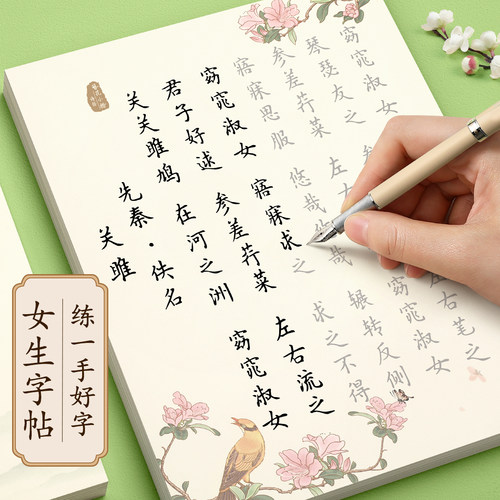 关雎
先秦·佚名
关关雎鸠
在河之洲
窈窕淑女
君子好逑
参差荇菜
左右流之
窈窕淑女
寤寐求之
求之不得
寤寐思服
悠哉悠哉
辗转反侧
参差荇菜
左右
窈窕淑女
琴瑟友之
左右笔之
窈窕淑女
练一手好字
女生字帖